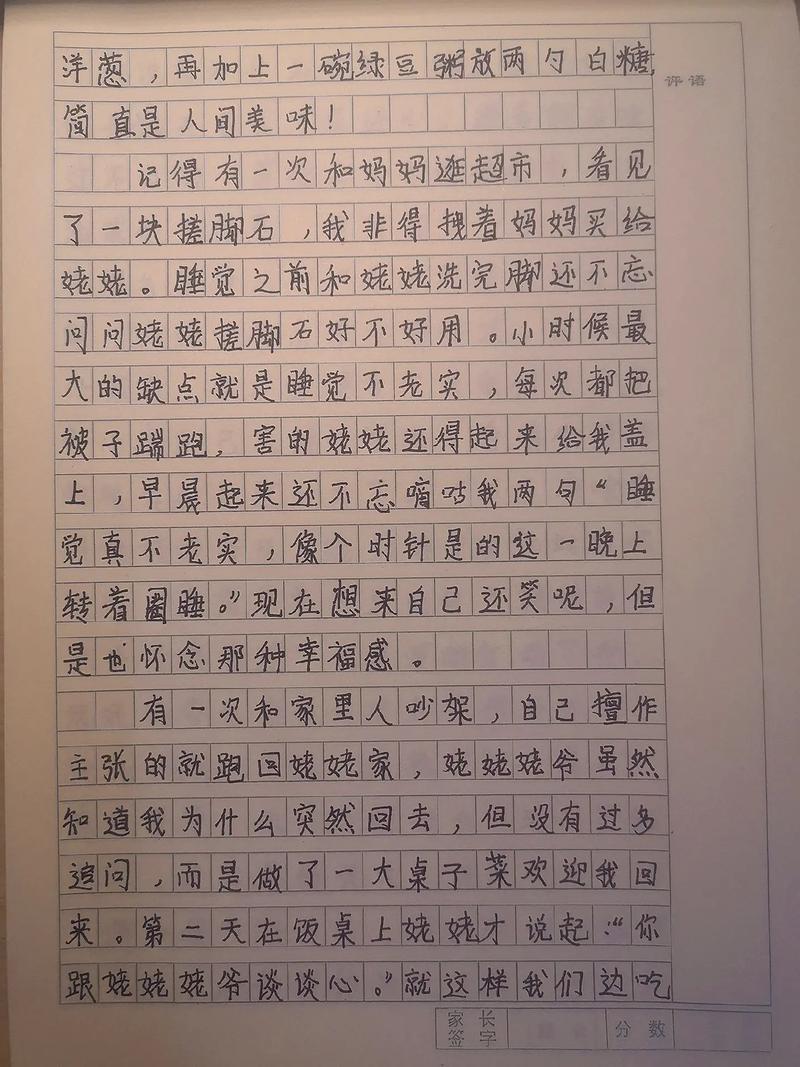 洋葱，再加上一碗绿豆粥放两勺白糖，
评语
简直是人间美味！
记得有一次和妈妈逛超市，看见
了一块搓脚石，我非得拽着妈妈买给
姥姥。睡觉之前和姥姥洗完脚还不忘
问问姥姥搓脚石好不好用。小时候最
大的缺点就是睡觉不老实，每次都把
被子踹跑，害的姥姥还得起来给我盖
上，早晨起来还不忘嘀咕我两句“睡
觉真不老实，像个时针是的这一晚上
转着圈睡。”现在想来自己还笑呢，但
是也怀念那种幸福感。
有一次和家里人吵架，自己擅作
主张的就跑回姥姥家，姥姥姥爷虽然
知道我为什么突然回去，但没有过多
追问，而是做了一大桌子菜欢迎我回
来。第二天在饭桌上姥姥才说起：“你
跟姥姥姥爷谈谈心。”就这样我们边吃
家长签字
分数